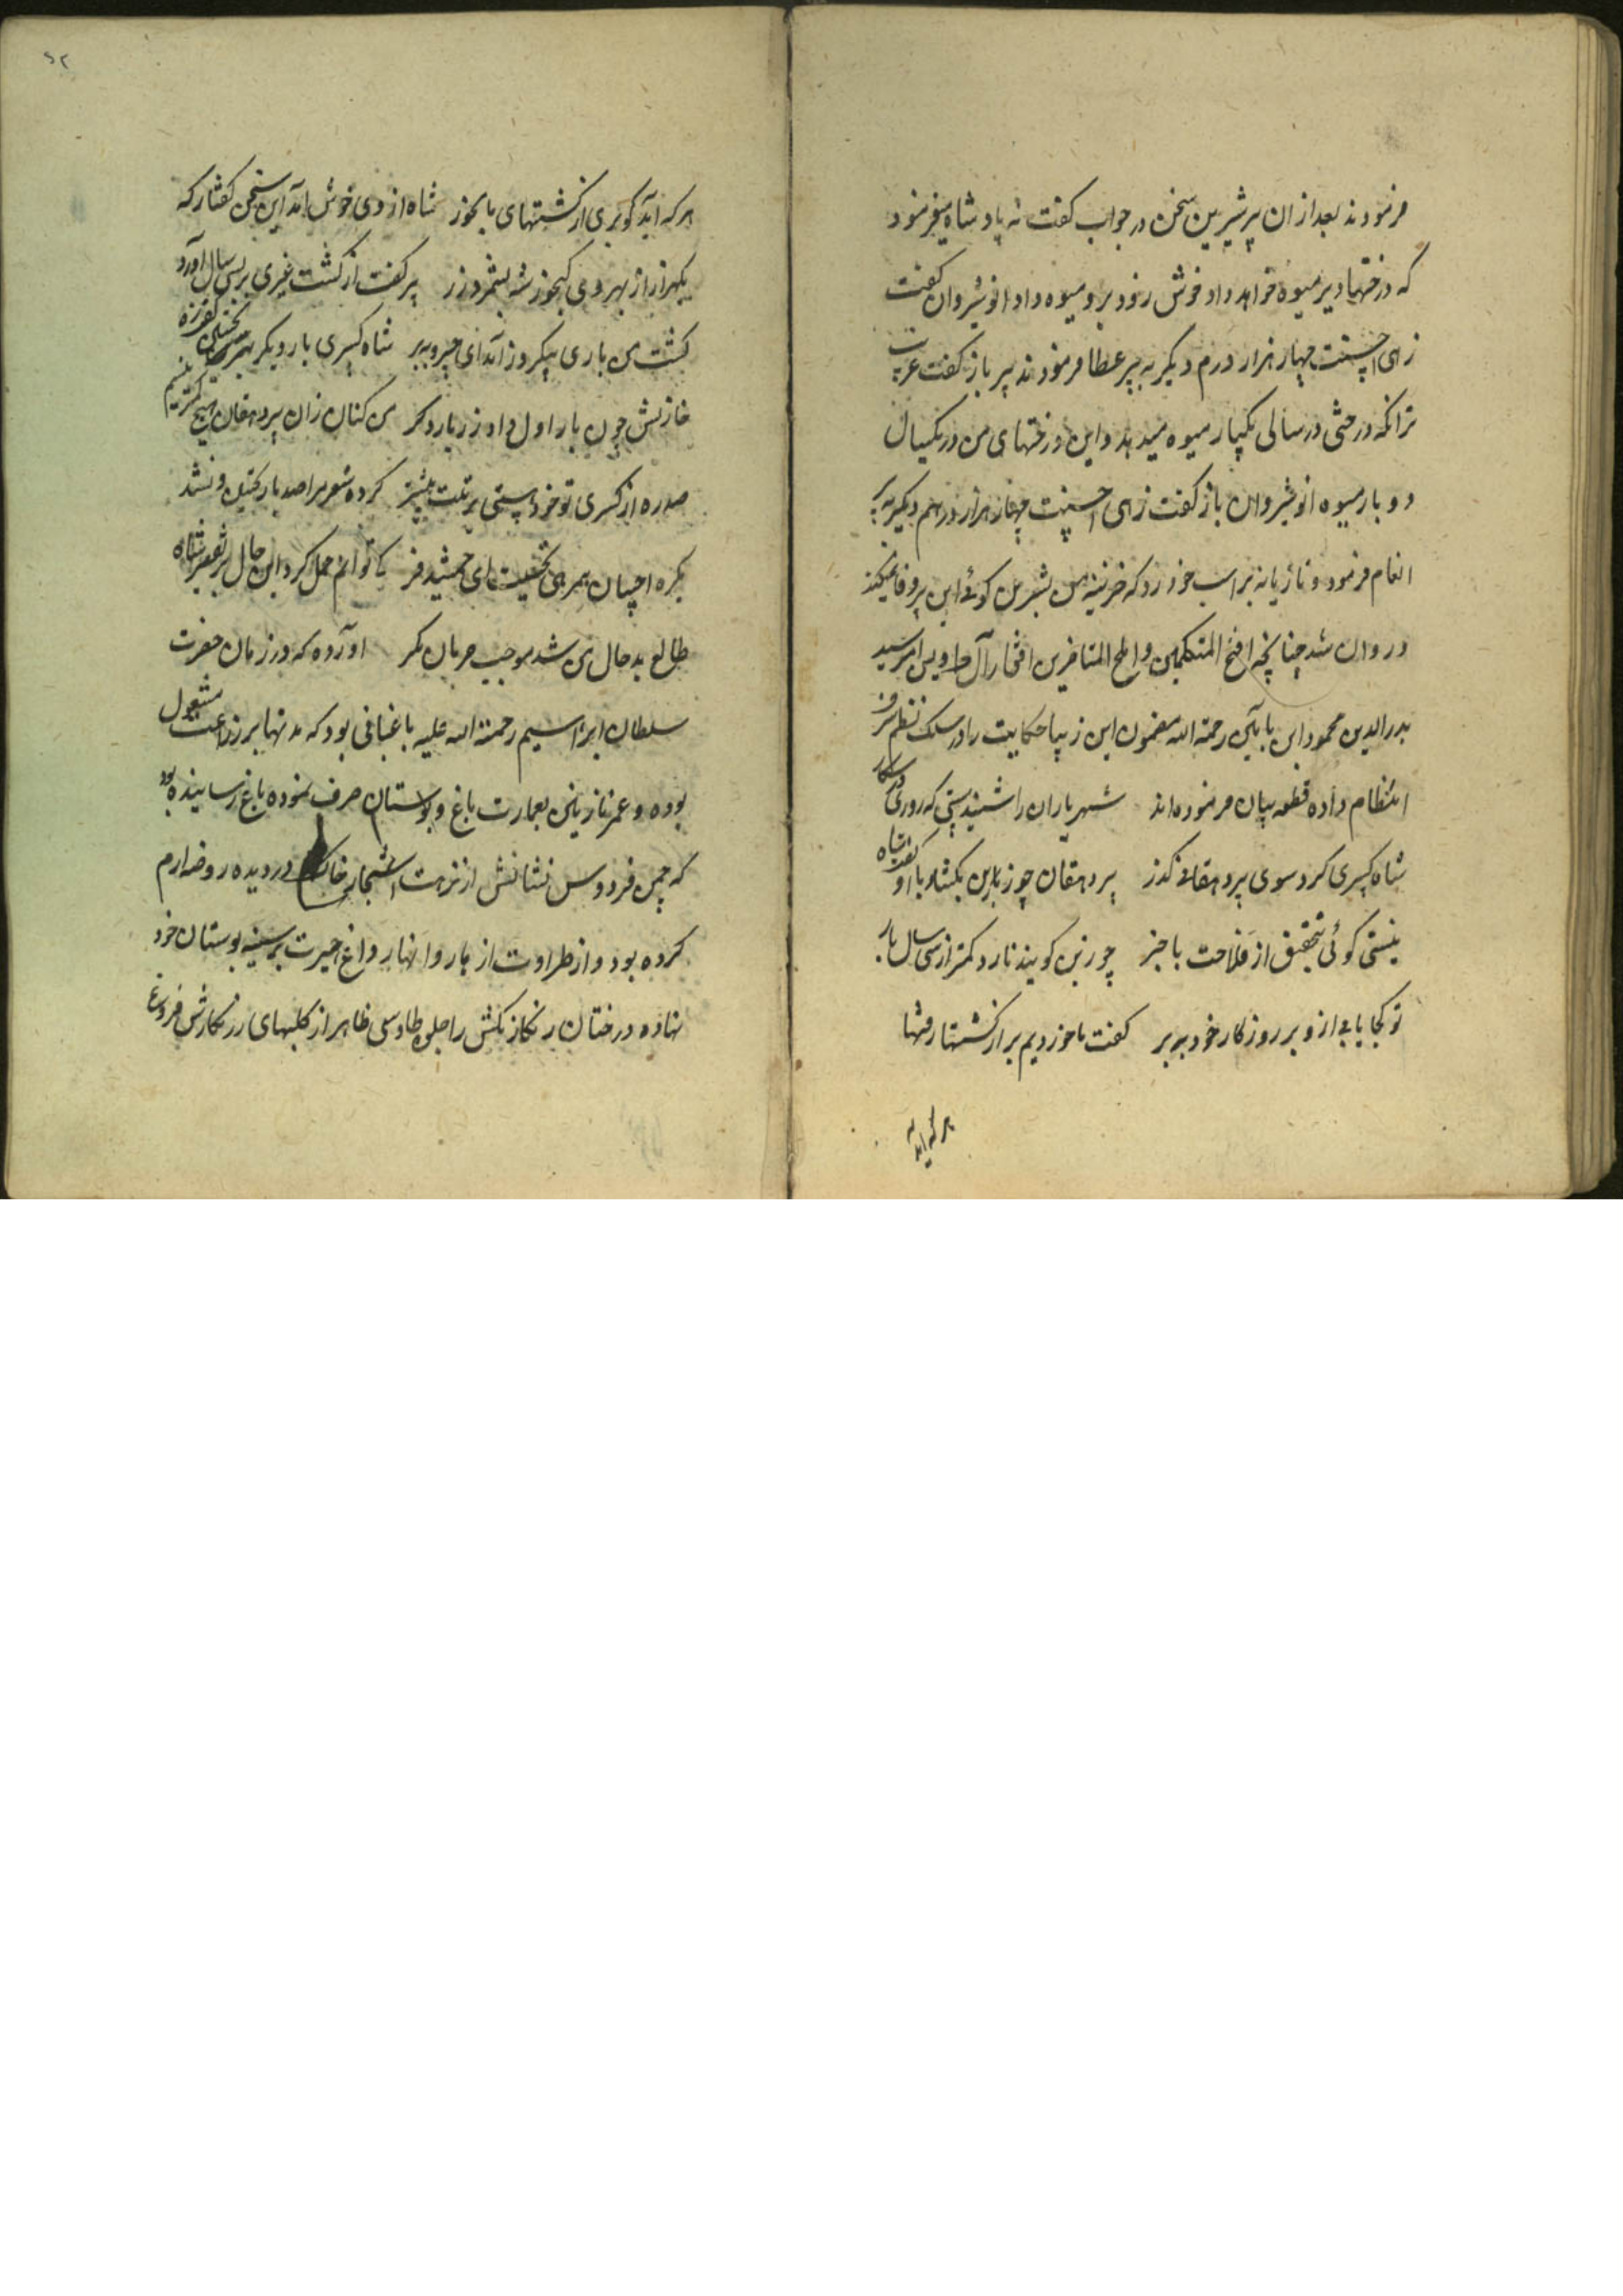 فرمودند بعد از ان پیر شیرین سخن در جواب کفت نه پادشاه میفرمود
که درختها دیر میوه خواهد داد خوش زود بر و میوه داد انوشیروان کفت
زهی احسنت چهار هزار درم دیکر به پیر عطا فرمودند پیر باز کفت
ترا نکه درختی در سالی یکبار میوه میدهد و این درختهای من در یکسال
دو بار میوه انوشیروان باز کفت زهی احسنت چهار هزار درهم دیکر به پیر
انعام فرمود و تازیانه بر اسب خود زد که خزینه من بشعر من کوئی این پیر وفا نمیکند
و روان شد چنانچه افتخ المتکلمین و املح المتاخرین افتخار آل طه و یس امیر سید
بدرالدین محمود ابن رحمة الله مضمون این زیبا حکایت را در سلک نظم
انتظام داده قطعه بیان فرموده اند شهریاران را شنیدستی که روزی در شکار
شاه کسری کرد سوی پیر دهقانی کذر پیر دهقان جوز بابن بکشاد با او کفت شاه
نیستی کوئی بتحقیق از فلاحت با خبر جوزبن کویند نارد کمتر از سی سال بار
تو کجا یابی از و بر روزکار خود ببر کفت ما خوردیم بر از کشتها رفتها
هر که اید
هر که آید کو بری از کشتهای ما بخور شاه از وی خوش آمد این سخن کفتار که
یکهزار از بهر وی کنجور شه بشمرد زر پیر کفت از کشت غیری بر بسی سال آورد
کشت من باری بیکروز آمد ای خسرو ببر شاه کسری بار دیکر
خازنش چون بار اول داد زر بار دکر من کنان زان پیر دهقان هیچ کمتر نیستم
صد ره از کسری تو خود هستی برتبت بیشتر کرده شعر مرا صد بار تحسین و نشد
یکره احسان همره تحسینت ای جمشید فر کی توانم حمل کرد این حال بر تقصیر شاه
طالع بد حال من شد موجب حرمان مکر آورده که در زمان حضرت
سلطان ابراهیم رحمة الله علیه باغبانی بود که مدتها بر زراعت مشغول
بوده و عمر نازنین بعمارت باغ و بوستان صرف نموده باغ رسانیده بود
که چمن فردوس نشانش از نزهت اشجار خاک در دیده روضه ارم
کرده بود و از طراوت ازهار و انهار داغ حیرت بر سینه بوستان خود
نهاده درختان رنکارنکش را جلوه طاوسی ظاهر از کلبهای زرنکارش فروغ